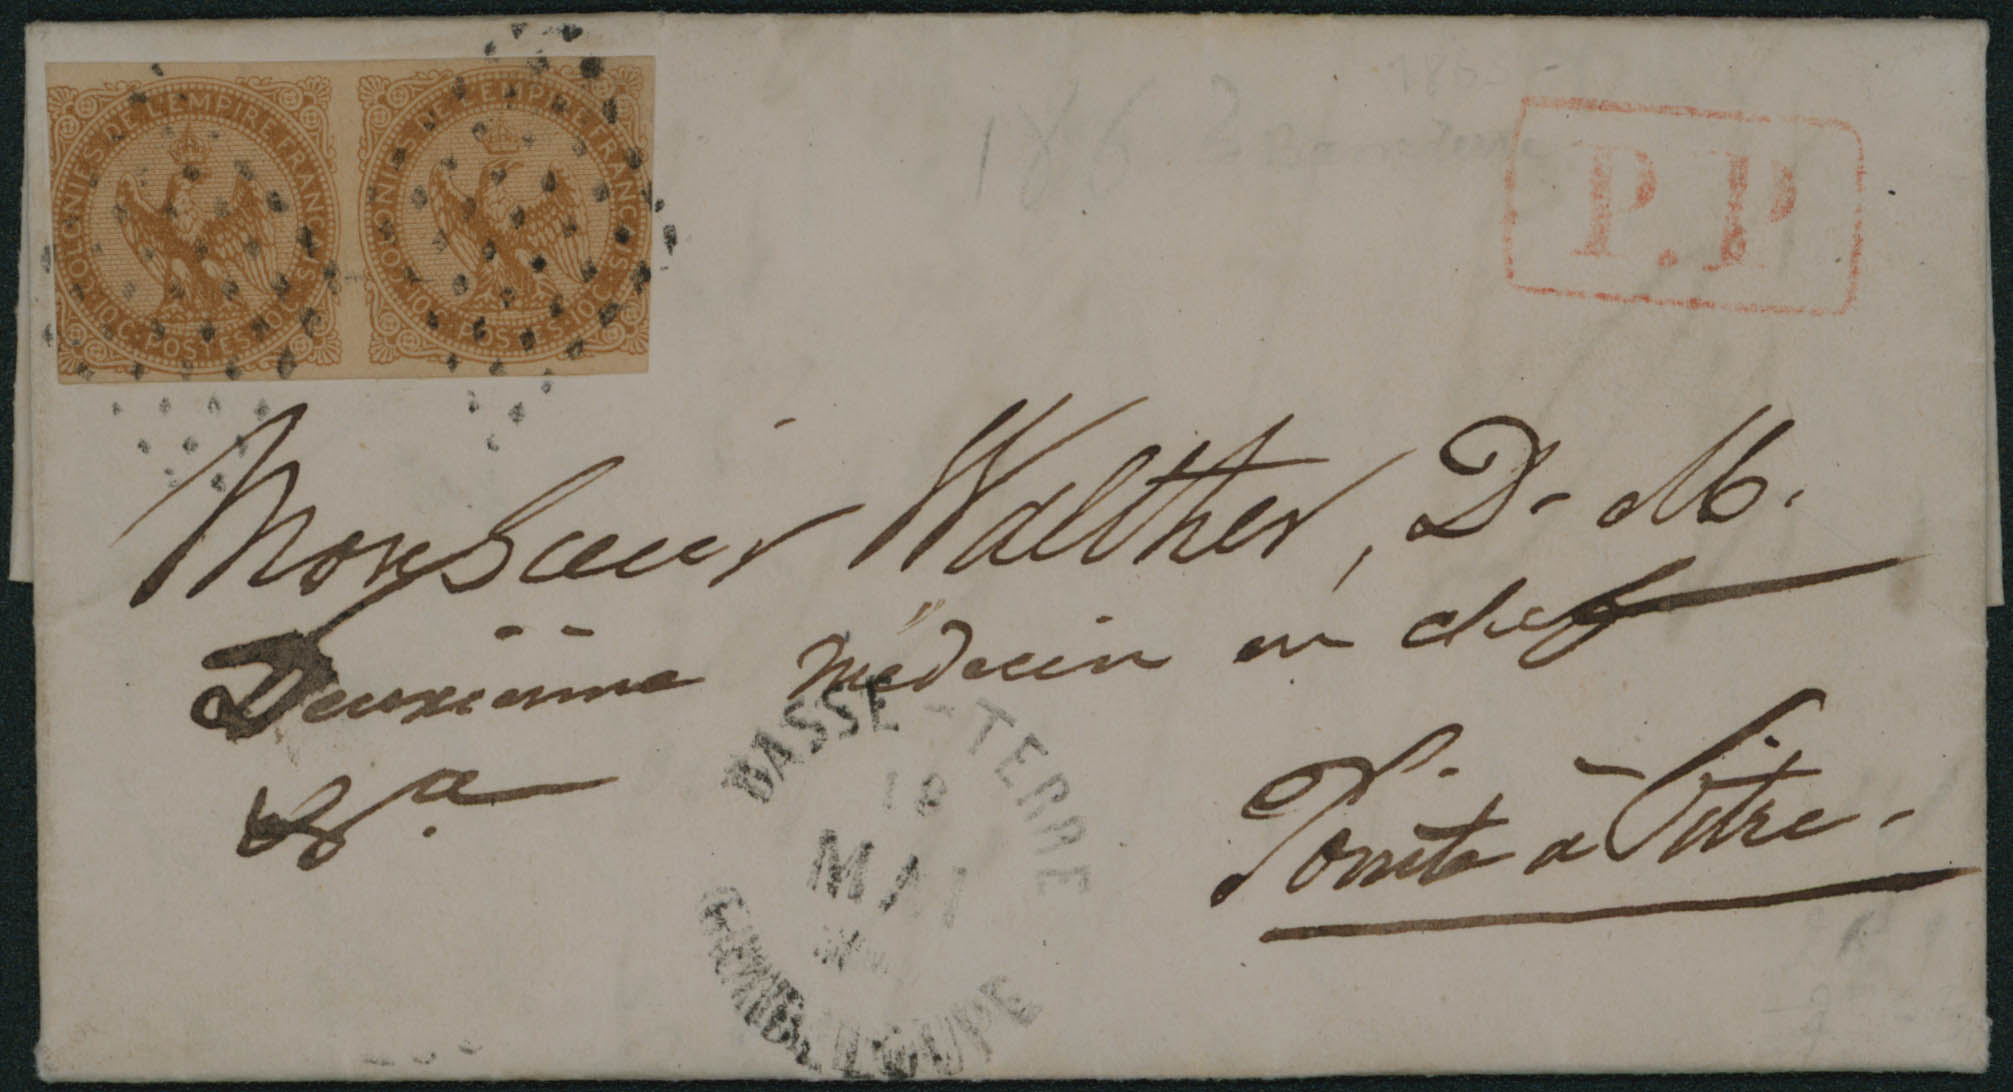 COLONIES DE L'EMPIRE FRANÇAIS
10 C. POSTES 10 C.
COLONIES DE L'EMPIRE FRANÇAIS
10 C. POSTES 10 C.
186
P.P.
Monsieur Walther, D. M.
Deuxième médecin en chef
BASSE-TERRE
18
MAI
GUADELOUPE
Pointe à Pitre.